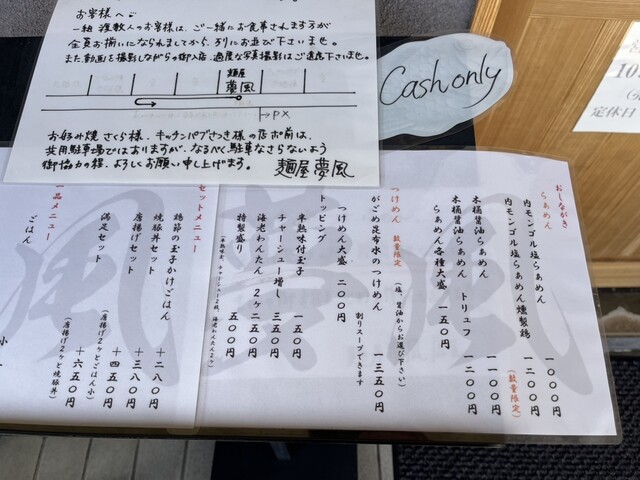 お客様へ。
一組複数人のお客様は、ご一緒にお食事されますすが
全員お揃いになられましてから、列にお並び下さいませ。
また、動画を撮影しながらの御入店、過度な写真撮影はご遠慮下さいませ。
麺屋
夢風
PX
お好み焼さくら様、キッチンパブさつき様の店お前は、
共用駐車場ではありますが、なるべく駐車なさらないよう
御協力の程、よろしくお願い申し上げます。 麺屋夢風
Cash only
10
定休日
おしながき
らぁめん
内モンゴル塩らぁめん 一〇〇〇円
内モンゴル塩らぁめん燻製鶏 一二〇〇円
(数量限定)
木桶醤油らぁめん 一一〇〇円
木桶醤油らぁめん トリュフ 一二〇〇円
らぁめん各種大盛 一五〇円
つけめん 数量限定 (塩、醤油からお選び下さい)
がごめ昆布水のつけめん 一三五〇円
割りスープできます
つけめん大盛 二〇〇円
トッピング
半熟味付玉子 一五〇円
チャーシュー増し 三五〇円
海老わんたん 2ヶ 二五〇円
特製盛り 五五〇円
(半熟味玉、チャーシュー2枚、海老わんたん2ヶ)
セットメニュー
鶏節の玉子かけごはん +二八〇円
焼豚丼セット +三八〇円
唐揚げセット +四五〇円
(唐揚げ2ヶとごはん小)
満足セット +六五〇円
(唐揚げ2ヶと焼豚丼)
一品メニュー
ごはん
小
風夢風